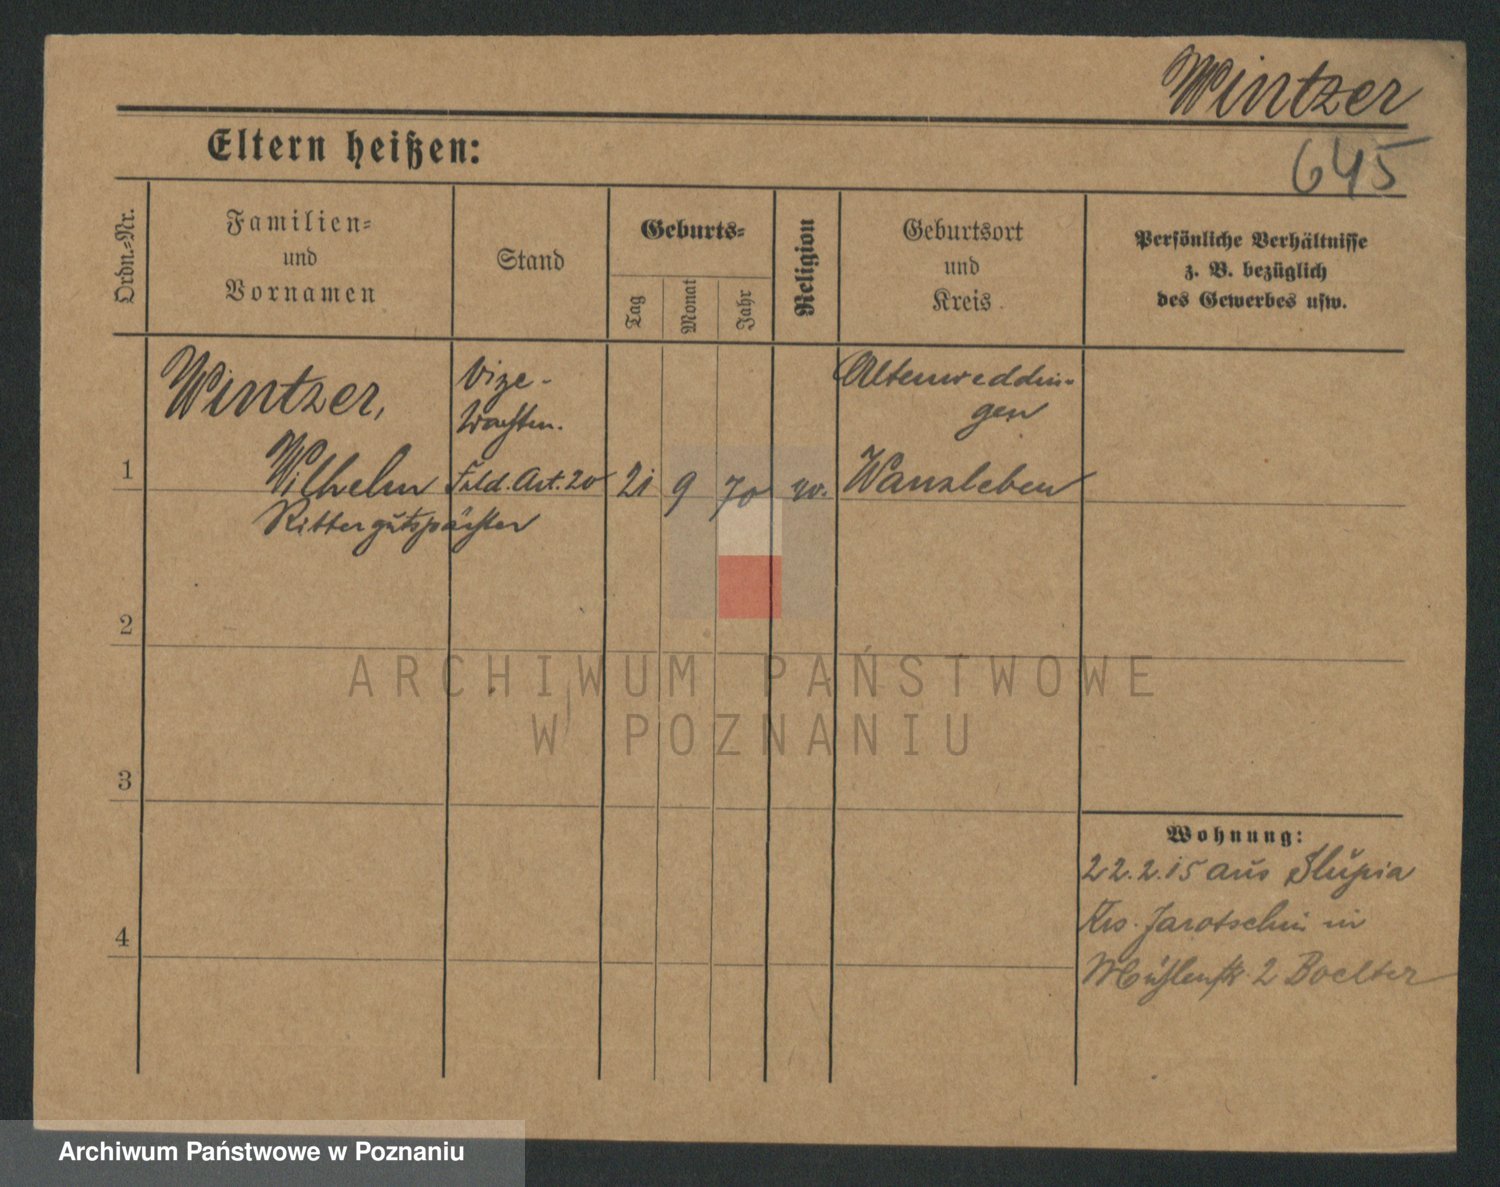 Wintzer
645
Eltern heißen:
Ordn.-Nr.
Familien-
und
Vornamen
Stand
Geburts-
Tag
Monat
Jahr
Religion
Geburtsort
und
Kreis.
Persönliche Verhältnisse
z. B. bezüglich
des Gewerbes usw.
1
Wintzer,
Wilhelm
Rittergutspächter
Vize-
Wachtm.
Feld. Art. 20
21
9
70
ev.
Altenweddin-
gen
Wanzleben
2
3
4
Wohnung:
22.2.15 aus Slupia
Krs. Jarotschin in
Mühlenstr. 2 Boelter
ARCHIWUM PAŃSTWOWE
W POZNANIU
Archiwum Państwowe w Poznaniu